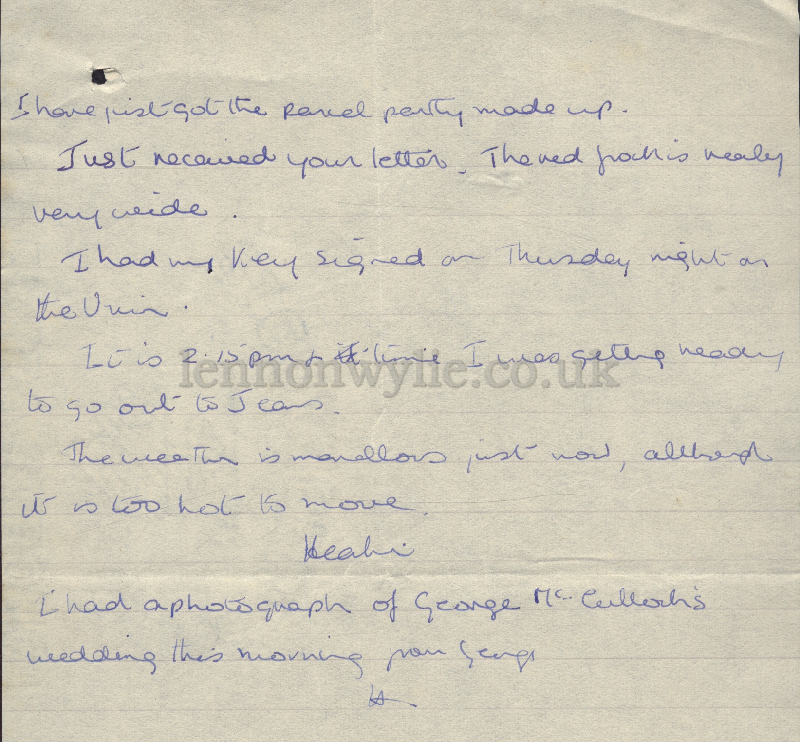 I have just got the parcel partly made up.
Just received your letter. The red frock is really
very wide.
I had my key signed on Thursday night on
the
It is 2.15 pm & time I was getting ready
to go out to Jeans.
The weather is marvellous just now, although
it is too hot to move.
I had a photograph of George McCulloch's
wedding this morning from George
H.
lennonwylie.co.uk